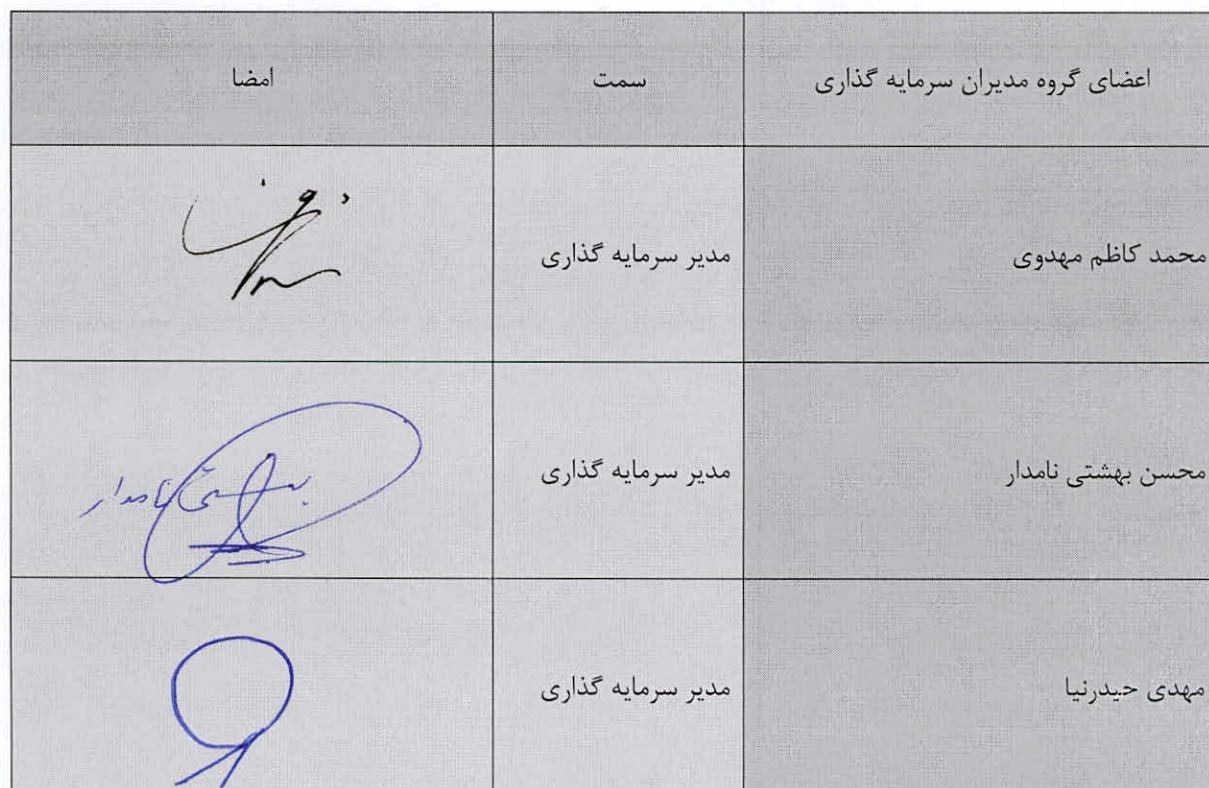 اعضای گروه مدیران سرمایه گذاری سمت امضا
محمد کاظم مهدوی مدیر سرمایه گذاری
محسن بهشتی نامدار مدیر سرمایه گذاری بهشتی نامدار
مهدی حیدرنیا مدیر سرمایه گذاری